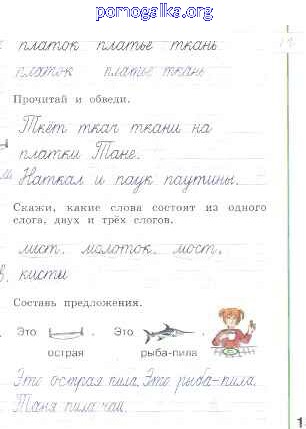 pomogalka.org
платок платье ткань
платок платье ткань
Прочитай и обведи.
Ткёт ткач ткани на
платки Тане.
Наткал и паук паутины.
Скажи, какие слова состоят из одного
слога, двух и трёх слогов.
лист, молоток, мост,
кисти
Составь предложения.
Это . Это .
острая рыба-пила
Это острая пила. Это рыба-пила.
Таня пила чай.
1